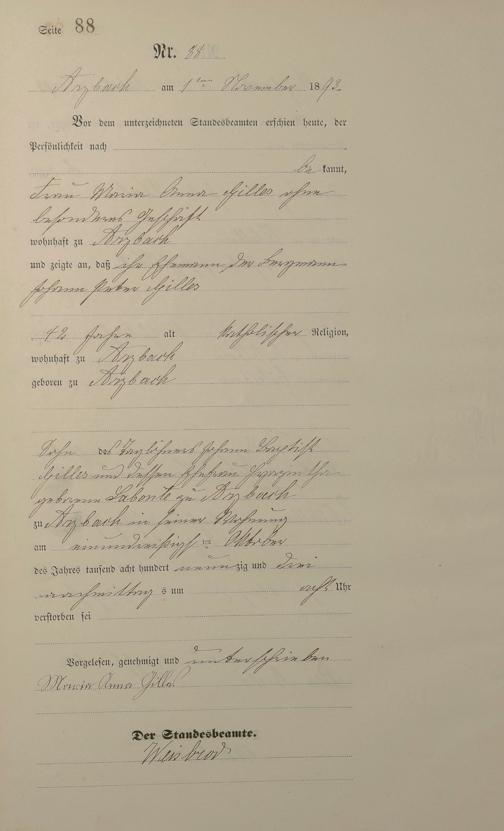 Seite 88
Nr. 88
Arzbach am 1ten November 1893.
Vor dem unterzeichneten Standesbeamten erschien heute, der
Persönlichkeit nach
be kannt,
Frau Maria Anna Gilles ohne
besonderes Geschäft
wohnhaft zu Arzbach
und zeigte an, daß ihr Ehemann, der Bergmann
Johann Peter Gilles
42 Jahre alt katholischer Religion,
wohnhaft zu Arzbach
geboren zu Arzbach
Sohn des Taglöhners Johann Baptist
Gilles und dessen Ehefrau
geborene Labonte zu Arzbach
zu Arzbach in seiner Wohnung
am einunddreißigsten Oktober
des Jahres tausend acht hundert neunzig und drei
nachmittags um acht Uhr
verstorben sei
Vorgelesen, genehmigt und unterschrieben
Maria Anna Gilles
Der Standesbeamte.
Weisbrod